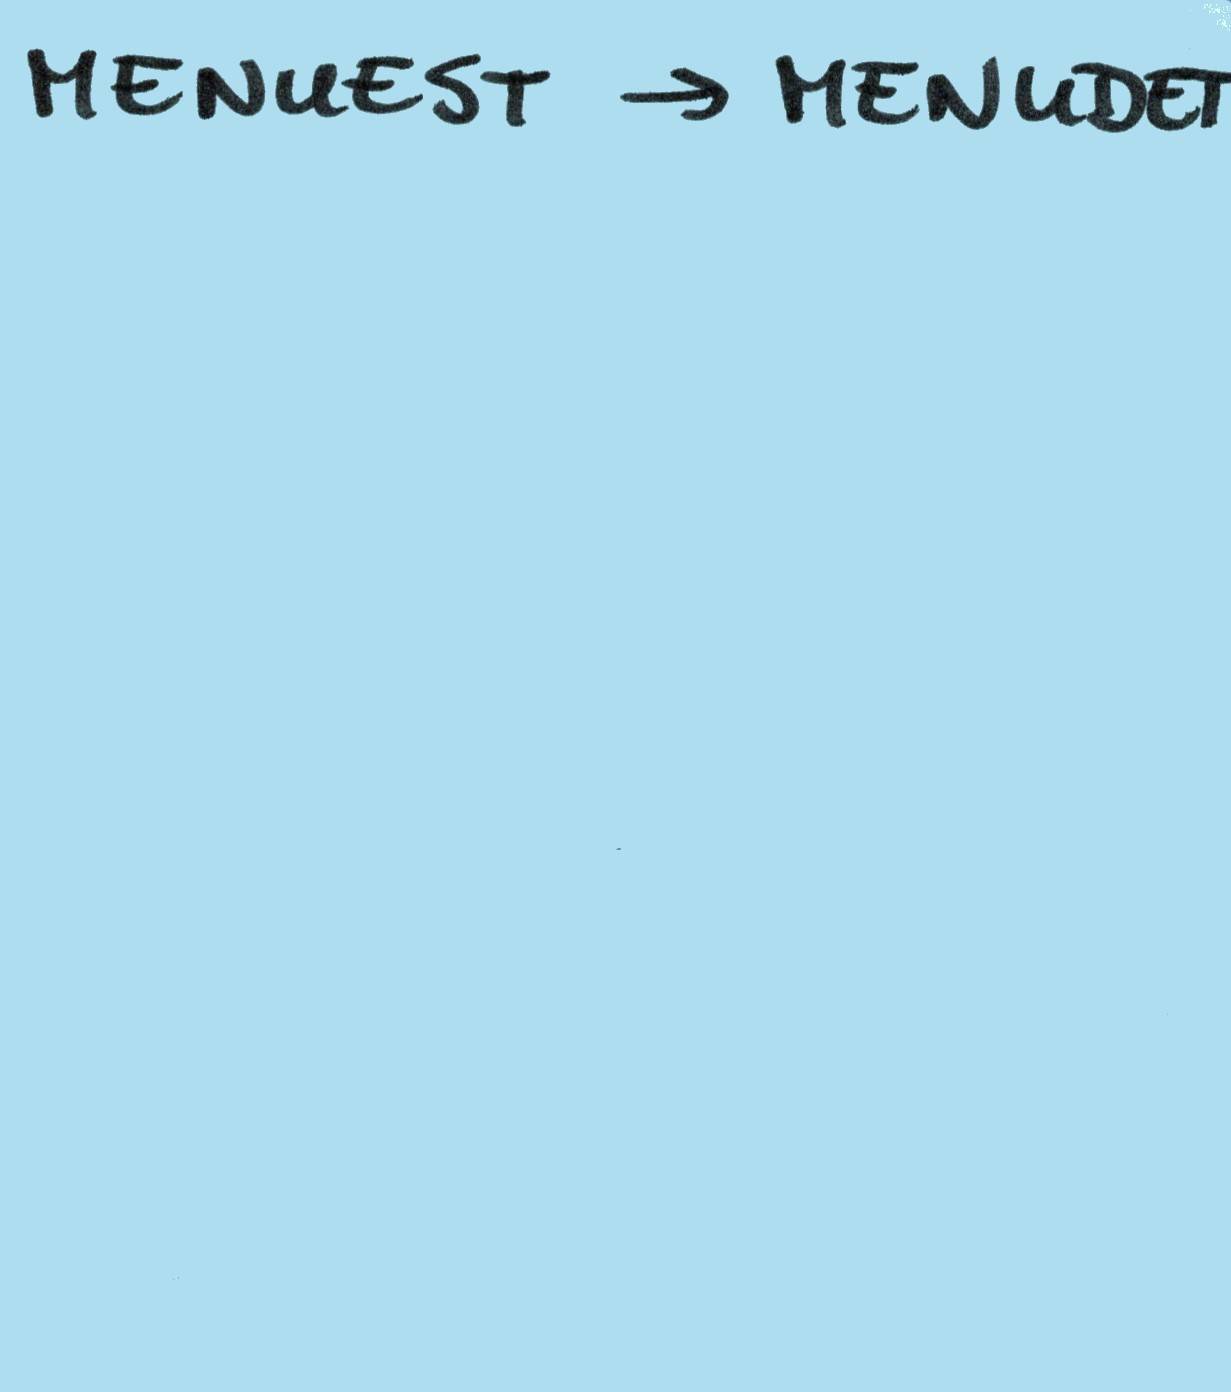 MENUEST → MENUDET